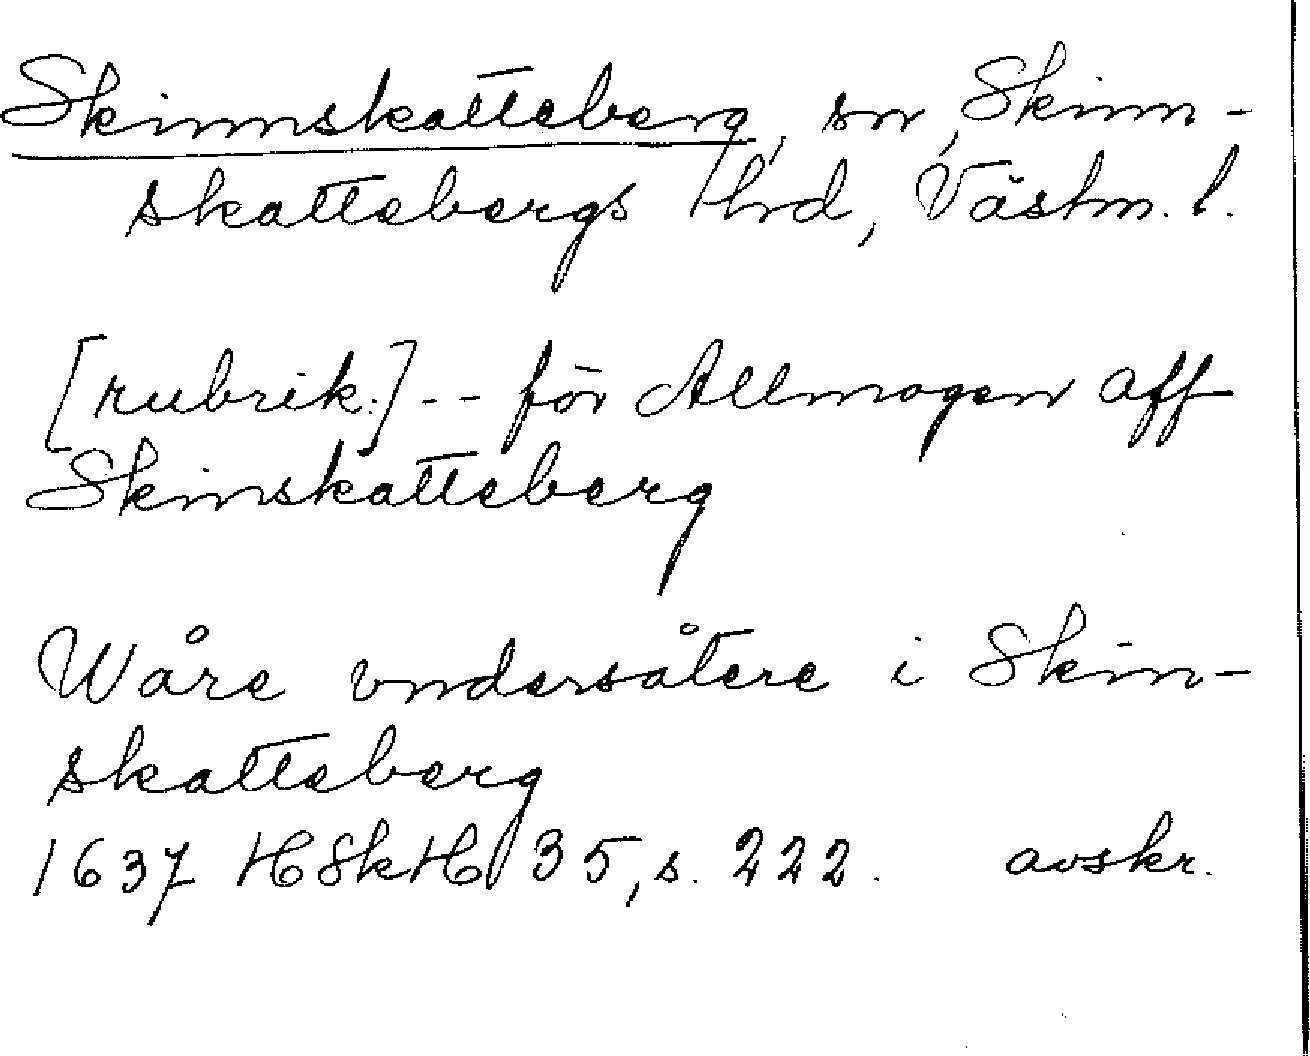 Skinnskatteberg, sn, Skinn-
skattebergs hrd, Västm. l.
[rubrik:] -- för Allmogen aff
Skinskatteberg
Wåre vndersåtere i Skin-
skatteberg
1637 HSkH 35, s. 222. avskr.